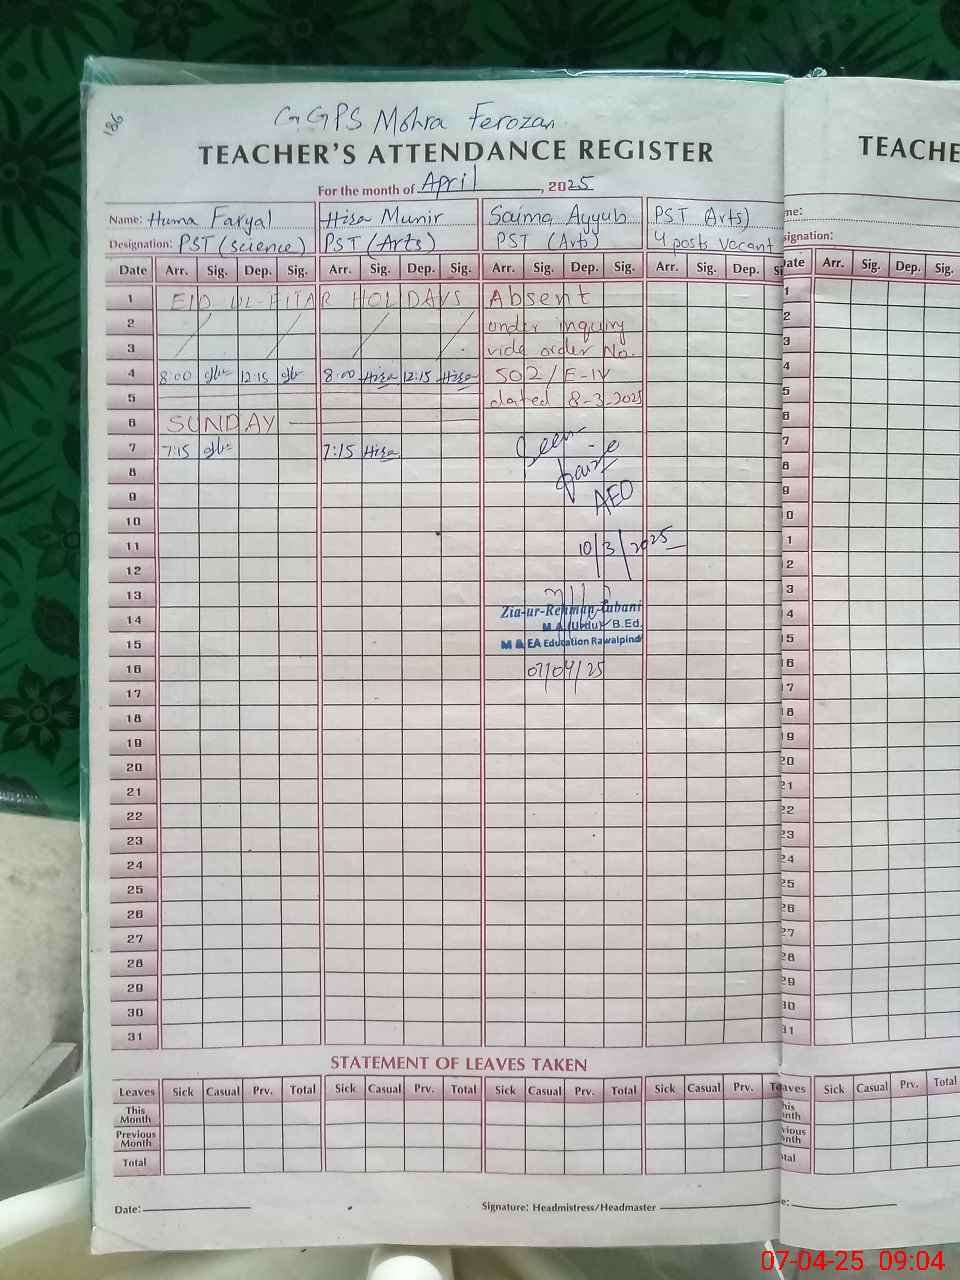 186
G.GPS Mohra Ferozan
TEACHER'S ATTENDANCE REGISTER
For the month of April, 2025
Name: Huma Faryal Hisa Munir Saima Ayyub PST (Arts)
Designation: PST (science) PST (Arts) PST (Arts) 4 posts vacant
Date Arr. Sig. Dep. Sig. Arr. Sig. Dep. Sig. Arr. Sig. Dep. Sig. Arr. Sig. Dep. Si
1 EID UL-FITAR HOLIDAYS Absent
2 under inquiry
3 vide order No.
4 8:00 12:15 8:00 Hisa 12:15 Hisa 502/E-IV
5 dated 8-3-2025
6 SUNDAY
7 7:15 7:15 Hisa Seen
8
9 AEO
10
11 10/3/2025
12
13
14 Zia-ur-Rehman
M.A (Urdu) B.Ed.
15 M & EA Education Rawalpindi
16 07/04/25
17
18
19
20
21
22
23
24
25
26
27
28
29
30
31
STATEMENT OF LEAVES TAKEN
Leaves Sick Casual Prv. Total Sick Casual Prv. Total Sick Casual Prv. Total Sick Casual Prv. To
This Month
Previous Month
Total
Date: Signature: Headmistress/Headmaster
TEACHE
me:
signation:
Date Arr. Sig. Dep. Sig.
1
2
3
4
5
6
7
8
9
0
1
2
3
4
5
6
7
8
9
20
21
22
23
24
25
26
27
28
29
30
31
aves Sick Casual Prv. Total
his
nth
vious
nth
tal
e:
07-04-25 09:04